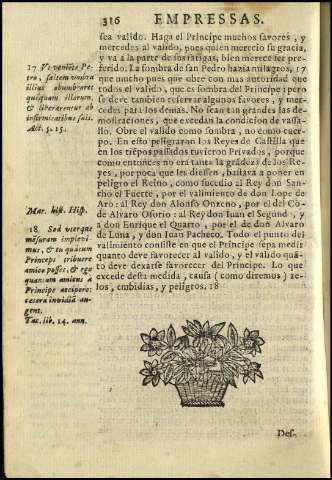 316 EMPRESSAS.
sea valido. Haga el Principe muchos favores, y
mercedes al valido, pues quien merecio su gracia,
y va a la parte de sus fatigas, bien merece ser pre-
ferido. La sombra de san Pedro hazia milagros, 17
que mucho pues que obre con mas autoridad que
todos el valido, que es sombra del Principe; pero
se deve tambien reservar algunos favores, y mer-
cedes para los demas. No sean tan grandes las de-
mostraciones, que excedan la condicion de vassa-
llo. Obre el valido como sombra, no como cuer-
po. En esto peligraron los Reyes de Castilla que
en los tiẽpos passados tuvieron Privados, porque
como entonces no era tanta la grãdeza de los Re-
yes, por poca que les diessen, bastava a poner en
peligro el Reino, como sucedio al Rey don San-
cho el Fuerte, por el valimiento de don Lope de
Aro: al Rey don Alonso Onzeno, por el del Cõ-
de Alvaro Osorio: al Rey don Iuan el Segundo, y
a don Enrique el Quarto, por el de don Alvaro
de Luna, y don Iuan Pacheco. Todo el punto del
valimiento consiste en que el Principe sepa medir
quanto deve favorecer al valido, y el valido quã-
to deve dexarse favorecer del Principe. Lo que
excede desta medida, causa (como diremos) ze-
los, embidias, y peligros. 18
17 Vt veniẽte Pe-
tro, saltem vmbra
illius obumbraret
quẽquam illorum,
& liberarentur ab
infirmitatibus suis.
Act. 5. 15.
Mar. hist. Hisp.
18 Sed vterque
mẽsuram implevi-
mus, & tu quãtum
Princeps tribuere
amico posset, & ego
quantum amicus a
Principe accipere:
cetera invidiã au-
gent.
Tac. lib. 14. ann.
Des-